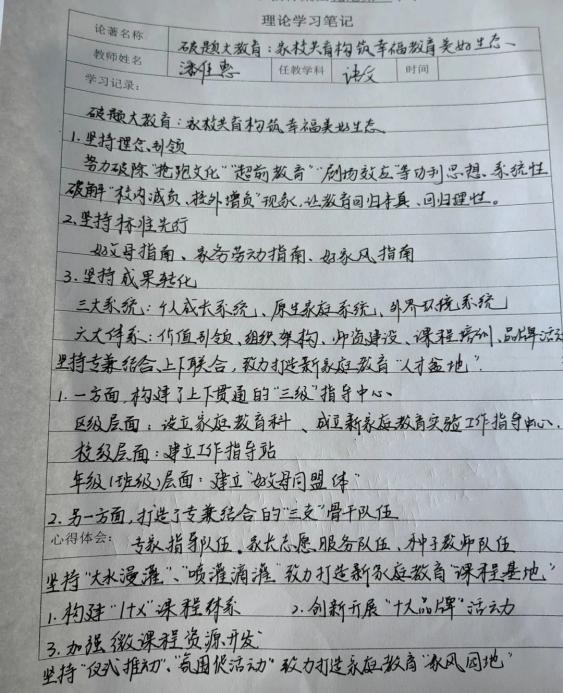 理论学习笔记
论著名称 破题大教育:家校共育构筑幸福教育美好生态、
教师姓名 潘佳惠 任教学科 语文 时间
学习记录:
破题大教育:家校共育构筑幸福美好生态
1.坚持理念引领
努力破除“抢跑文化”“超前教育”“剧场效应”等功利思想、系统性
破解“校内减负、校外增负”现象,让教育回归本真、回归理性。
2.坚持标准先行
好父母指南、家务劳动指南、好家风指南
3.坚持成果转化
三大系统:个人成长系统、原生家庭系统、外界环境系统
六大体系:价值引领、组织架构、师资建设、课程培训、品牌活动
坚持专兼结合、上下联合,致力打造新家庭教育“人才盆地”.
1.一方面,构建了上下贯通的“三级”指导中心、
区级层面:设立家庭教育科、成立新家庭教育实验工作指导中心、
校级层面:建立工作指导站
年级(班级)层面:建立“好父母同盟体”
2.另一方面,打造了专兼结合的“三支”骨干队伍
心得体会: 专家指导队伍、家长志愿服务队伍、种子教师队伍
坚持“大水漫灌”、“喷灌滴灌”致力打造新家庭教育“课程基地”
1.构建“1+X”课程体系 2.创新开展“十大品牌”活动
3.加强微课程资源开发
坚持“仪式推动”、“氛围促活动”致力打造家庭教育“家风园地”